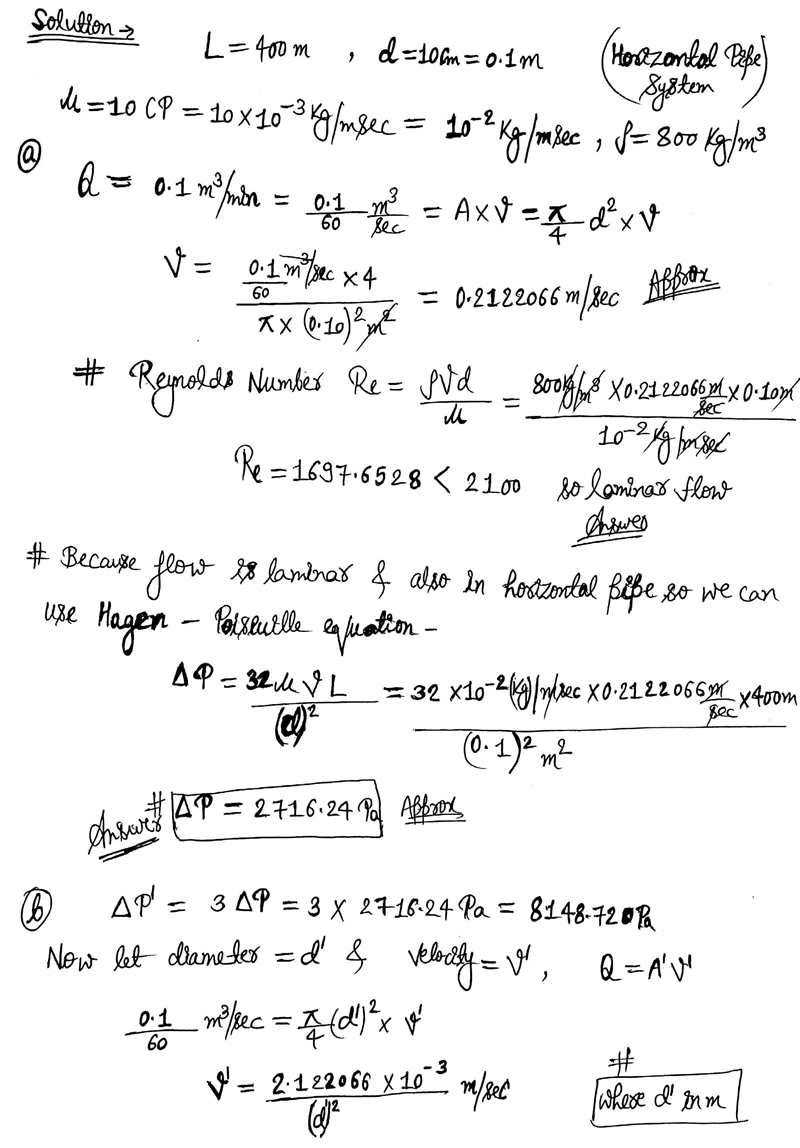 Solution →
L = 400 m , d = 10cm = 0.1 m (Horizontal Pipe System)
μ = 10 CP = 10 × 10⁻³ Kg/msec = 10⁻² Kg/msec , ρ = 800 Kg/m³
(a)
Q = 0.1 m³/min = 0.1/60 m³/sec = A × V = π/4 d² × V
V = (0.1/60 m³/sec × 4)/(π × (0.10)² m²) = 0.2122066 m/sec Approx
# Reynolds Number Re = ρVd/μ = (800 Kg/m³ × 0.2122066 m/sec × 0.10m)/(10⁻² Kg/msec)
Re = 1697.6528 < 2100 so laminar flow
Answer
# Because flow is laminar & also in horizontal pipe, so we can
use Hagen - Poiseuille equation -
ΔP = 32 μ V L/(d)² = (32 × 10⁻² (Kg)/m/sec × 0.2122066 m/sec × 400m)/((0.1)² m²)
Answer # ΔP = 2716.24 Pa Approx
(b) ΔP' = 3 ΔP = 3 × 2716.24 Pa = 8148.720 Pa
Now let diameter = d' & velocity = V' , Q = A'V'
0.1/60 m³/sec = π/4 (d')² × V'
V' = 2.122066 × 10⁻³/(d')² m/sec # where d' in m